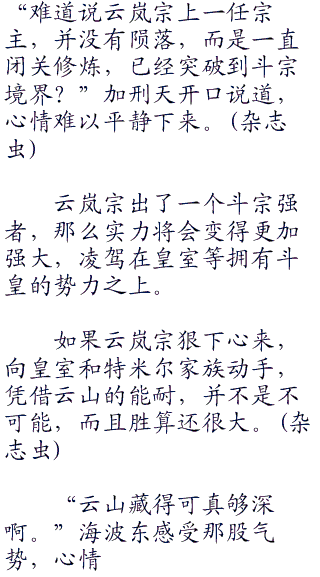 “难道说云岚宗上一任宗
主，并没有陨落，而是一直
闭关修炼，已经突破到斗宗
境界？”加刑天开口说道，
心情难以平静下来。(杂志
虫)
云岚宗出了一个斗宗强
者，那么实力将会变得更加
强大，凌驾在皇室等拥有斗
皇的势力之上。
如果云岚宗狠下心来，
向皇室和特米尔家族动手，
凭借云山的能耐，并不是不
可能，而且胜算还很大。(杂
志虫)
“云山藏得可真够深
啊。”海波东感受那股气
势，心情